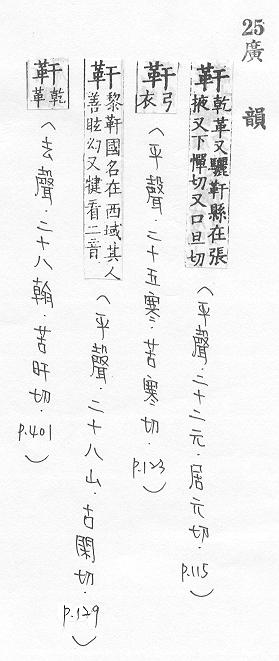 25廣韻
靬乾革又驪靬縣在張掖又下憚切又口旦切（平聲．二十二元．居元切．p.115）
靬弓衣（平聲．二十五寒．苦寒切．p.123）
靬黎靬國名在西域其人善眩幻又犍看二音（平聲．二十八山．古閑切．p.129）
靬乾革（去聲．二十八翰．苦旰切．p.401）